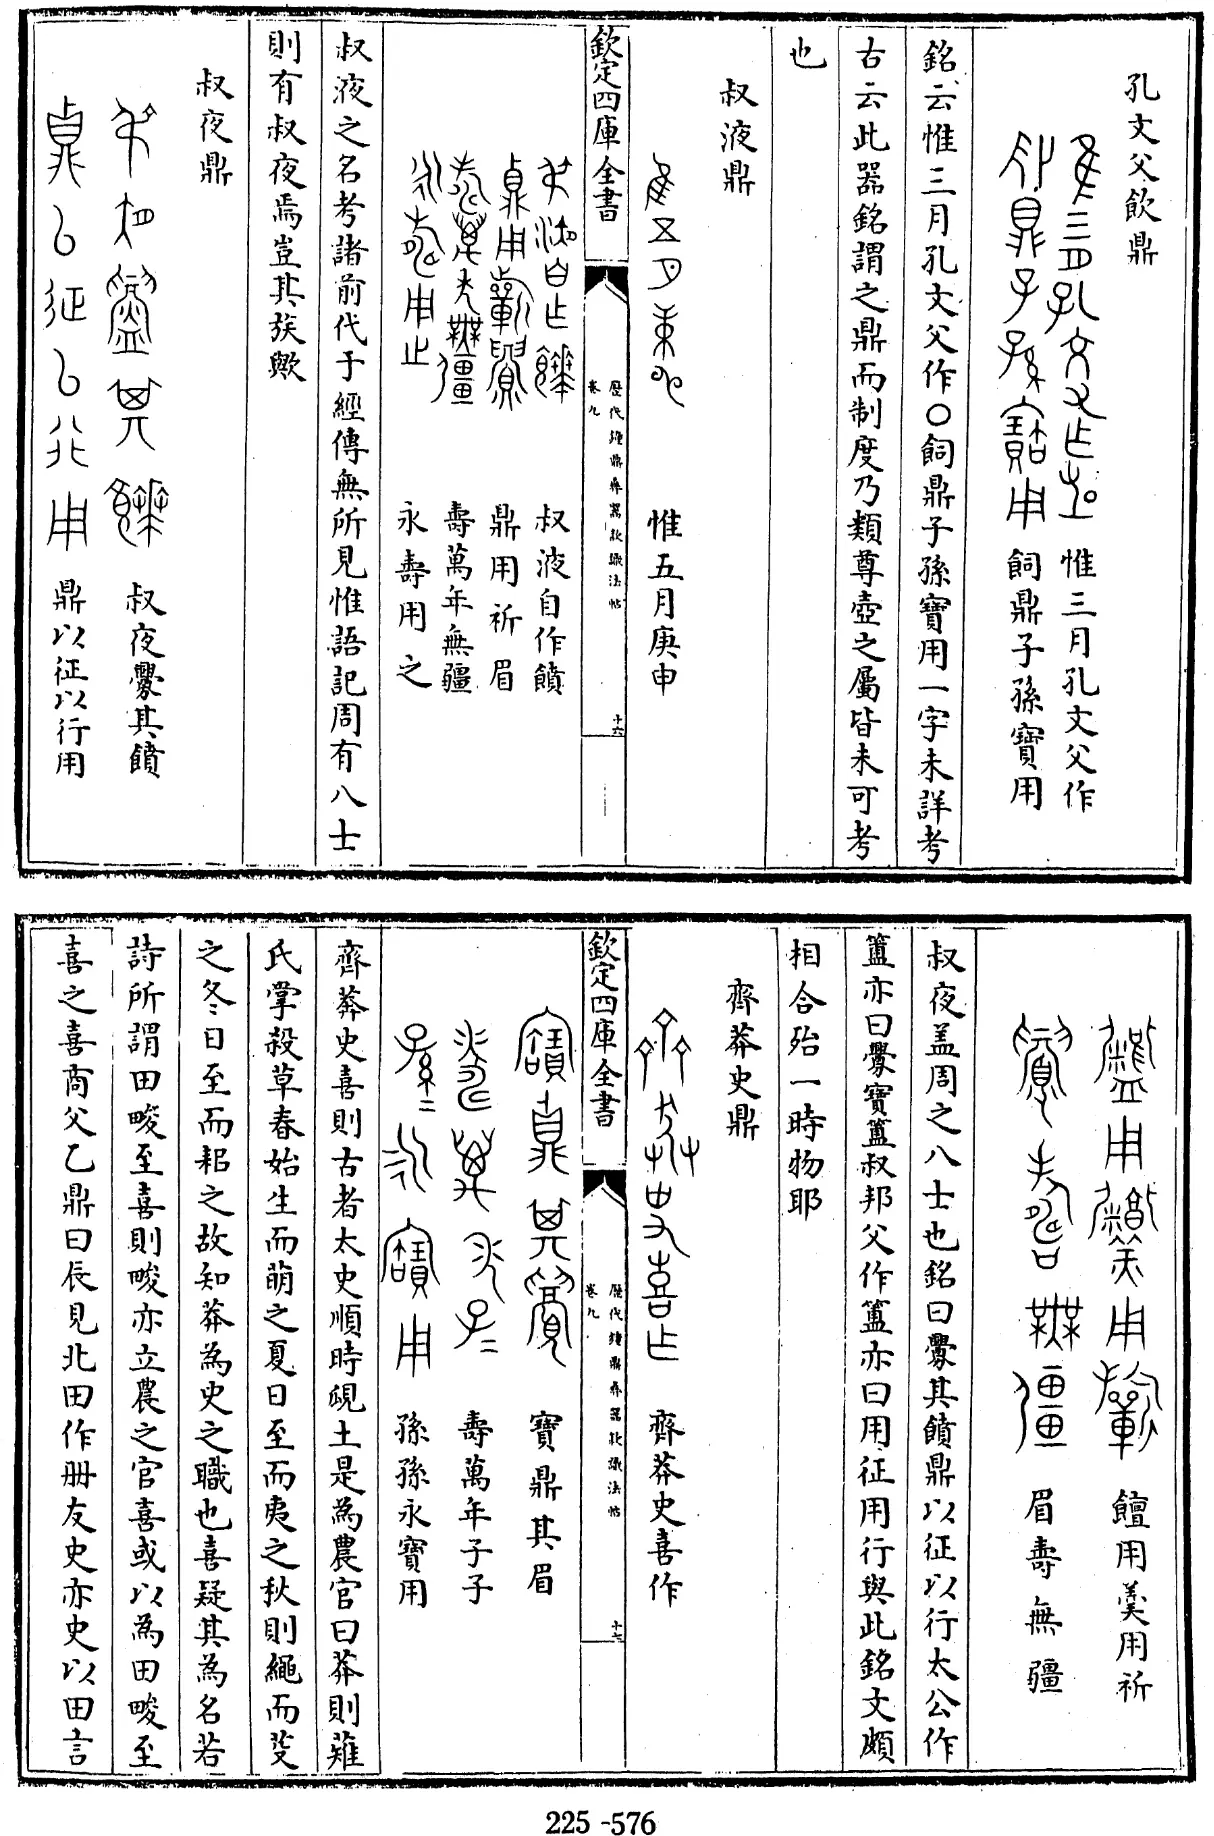 孔文父飲鼎
惟三月孔文父作
飼鼎子孫寶用
銘云惟三月孔文父作〇飼鼎子孫寶用一字未詳考
古云此器銘謂之鼎而制度乃類尊壺之屬皆未可考
也
叔液鼎
惟五月庚申
欽定四庫全書
歷代鐘鼎彝器款識法帖
卷九
十六
叔液自作饙
鼎用祈眉
壽萬年無疆
永壽用之
叔液之名考諸前代于經傳無所見惟語記周有八士
則有叔夜焉豈其族歟
叔夜鼎
叔夜鑄其饙
鼎以征以行用
饘用羹用祈
眉壽無疆
叔夜盖周之八士也銘曰鑄其饙鼎以征以行太公作
簠亦曰鑄寶簠叔邦父作簠亦曰用征用行與此銘文頗
相合殆一時物耶
齊莽史鼎
齊莽史喜作
欽定四庫全書
歷代鐘鼎彝器款識法帖
卷九
十七
寶鼎其眉
壽萬年子子
孫孫永寶用
齊莽史喜則古者太史順時覛土是為農官曰莽則薙
氏掌殺草春始生而萌之夏日至而夷之秋則繩而芟
之冬日至而耜之故知莽為史之職也喜疑其為名若
詩所謂田畯至喜則畯亦立農之官喜或以為田畯至
喜之喜商父乙鼎曰辰見北田作冊友史亦史以田言
225-576